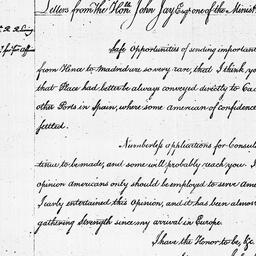 Letters from The Honble John Jay Esqr one of the Minist
Safe Opportunities of sending importan
from Hence to Madrid are so very rare, that I think yo
that Place had better be always conveyed directly to Ca
other Ports in Spain, where some american of confidence
settled.
Numberless applications for Consul
tinue to be made, and some will probably reach you. I
opinion americans only should be employed to serve Ame
I early entertained this Opinion, and it has been almos
gathering Strength since my arrival in Europe.
I have the Honor to be, &c